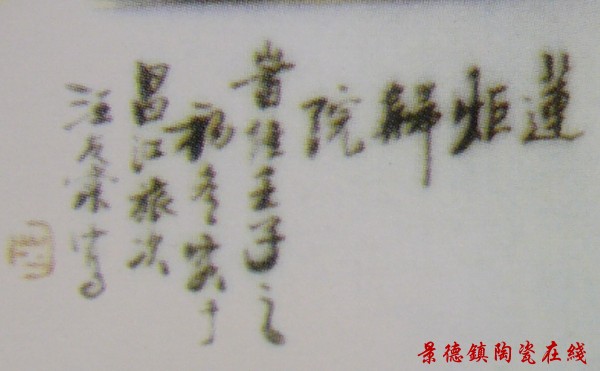 蓮炬歸院
旹維壬子之
初冬于
昌江旅次
汪友棠寫
景德鎮陶瓷在綫